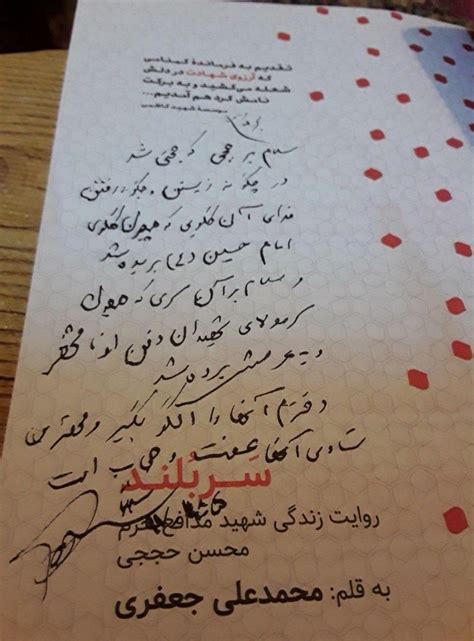 تقدیم به فرماندهٔ گمنامی
که آرزوی شهادت در دلش
شعله می‌کشید و به برکت
نامش گرد هم آمدیم...
موسسهٔ شهید کاظمی
سلام بر حججی که حجتی شد
در چگونه زیستن و چگونه رفتن
فدای آن گلوی که همچون گلوی
امام حسین (ع) بریده شد
و سلام بر آن سری که همچون
سر مولای شهیدان دفن آن نامشخص
و به عرش برده شد
دخترم آنها را الگو بگیر و مهمترین
شادی آنها عفت و حجاب است
سربلند
روایت زندگی شهید مدافع حرم
محسن حججی
به قلم: محمدعلی جعفری